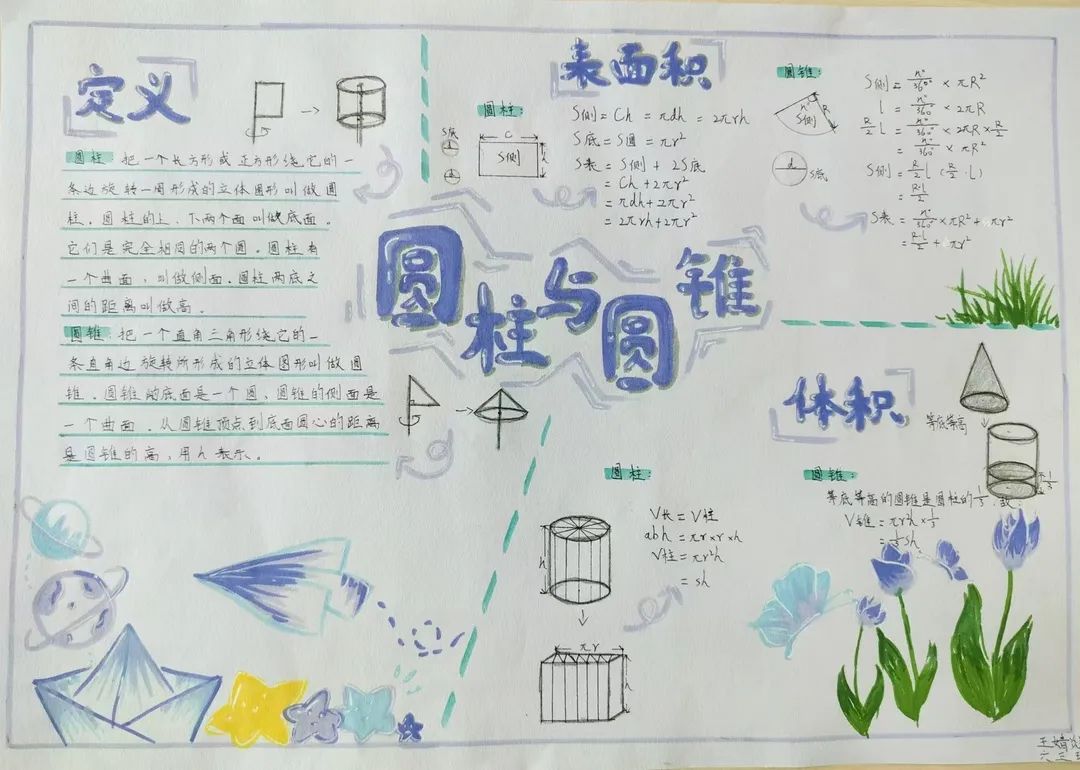 定义
圆柱:把一个长方形或正方形绕它的一
条边旋转一周形成的立体图形叫做圆
柱。圆柱的上、下两个面叫做底面。
它们是完全相同的两个圆。圆柱有
一个曲面，叫做侧面。圆柱两底之
间的距离叫做高。
圆锥:把一个直角三角形绕它的一
条直角边旋转所形成的立体图形叫做圆
锥。圆锥的底面是一个圆、圆锥的侧面是
一个曲面。从圆锥顶点到底面圆心的距离
是圆锥的高，用h表示。
表面积
圆柱:
S底
C
S侧
h
S侧 = Ch = πdh = 2πrh
S底 = S圆 = πr²
S表 = S侧 + 2S底
= Ch+2πr²
= πdh+2πr²
= 2πrh+2πr²
圆锥:
n°
R
S侧
d
S底
S侧 = n°/360° × πR²
l = n°/360° × 2πR
R/2 l = n°/360° × 2πR × R/2
= n°/360° × πR²
S侧 = R/2 l (R/2 · l)
= R·l/2
S表 = n°/360° × πR² + πr²
= R·l/2 + πr²
圆柱与圆锥
体积
圆柱:
h
V长 = V柱
abh = πr×r×h
V柱 = πr²h
= sh
πr
r
h
等底等高
1/3
圆锥:
等底等高的圆锥是圆柱的1/3,故
V锥 = πr²h × 1/3
= 1/3 sh
王婧
六三